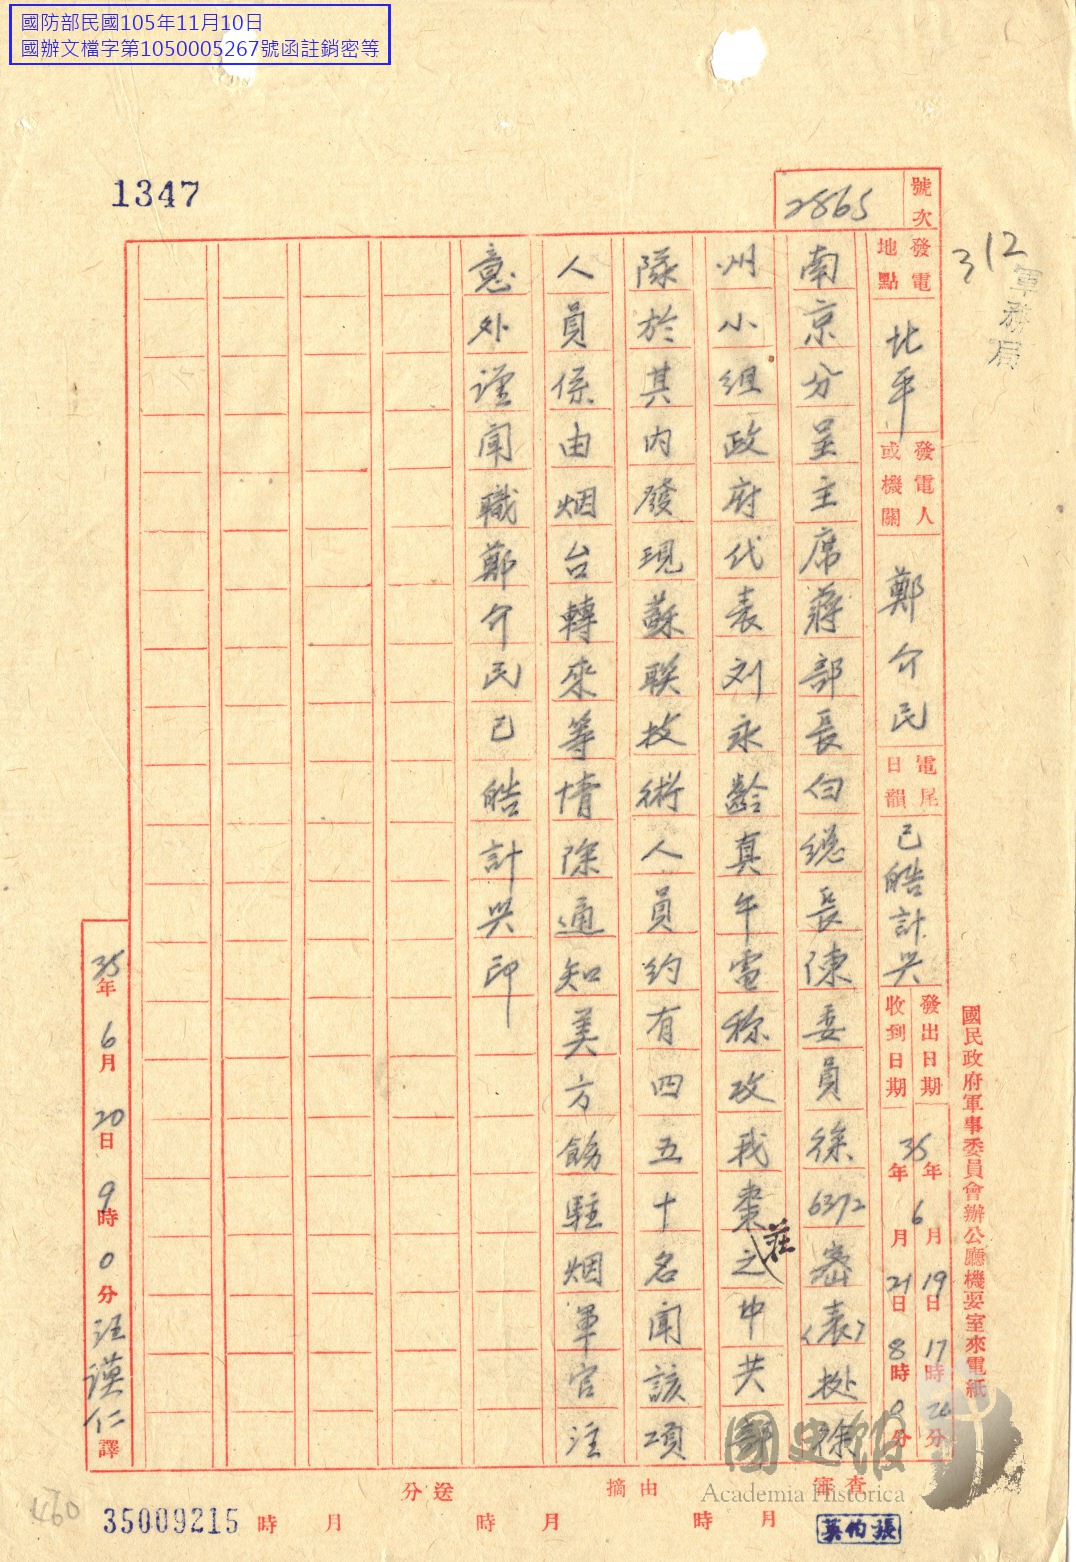 國防部民國105年11月10日
國辦文檔字第1050005267號函註銷密等
1347
號次
2865
312
軍務局
發電地點
北平
發電人或機關
鄭介民
電尾日韻
已皓計兴
發出日期
35年6月19日17時26分
收到日期
年月21日8時0分
南京分呈主席蔣部長白總長陳委員徐6372密(表)挻徐
州小組政府代表刘永齡真午電称攻我棗之莊中共部
隊於其内發現蘇联技術人員約有四五十名聞該項
人員係由烟台轉來等情除通知美方飭駐烟軍官注
意外谨闻職鄭介民已皓計兴印
國民政府軍事委員會辦公廳機要室來電紙
35年6月20日9時0分汪漢仁譯
審查
摘由
送分
月時
月時
月時
460
35009215
張伯英
國史館
Academia Historica